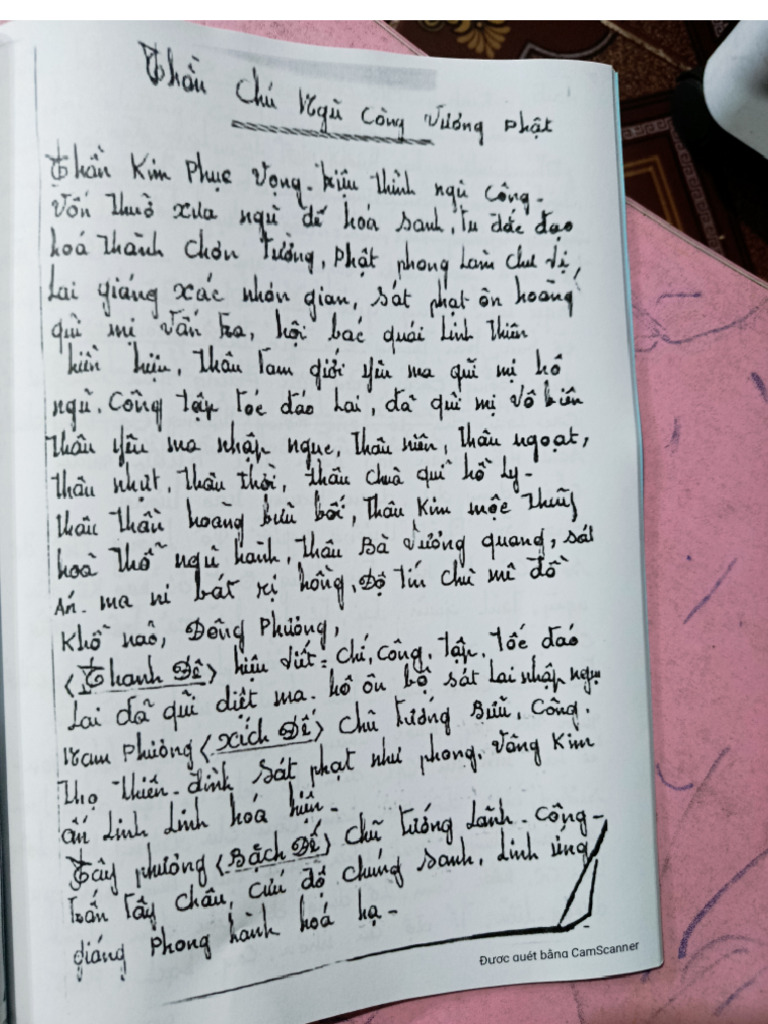 Thần Chú Ngũ Công Vương Phật
Thần Kim Phục Vọng. Kiệu thỉnh ngũ công.
Vốn thuở xưa ngũ đế hoá sanh, tu đắc đạo
hoá thành chơn tướng, Phật phong làm chư vị,
Lai giáng xác nhơn gian, sát phạt ôn hoàng
quỉ mị vấn tra, hội bác quái linh thiên
hiền hiệu, thâu tam giới yêu ma quỉ mị hồ
ngũ. Công tập tóc đáo lai, đã quỉ mị vô biên
thâu yêu ma nhập ngục, thâu niên, thâu ngoạt,
thâu nhựt, thâu thời, thâu chuà quỉ hồ ly.
thâu thần hoàng bửu bối, thâu Kim mộc thuỷ
hoả thổ ngũ hành, thâu Bà Vương quang, sát
Án. ma ni bát rị hồng. Độ tín chủ mê đồ
khổ não, Đông Phương,
(Thanh Đế) hiệu viết = Chí, Công. Tập. Tốc đáo
Lai đã quỉ diệt ma. hồ ôn bộ sát lai nhập ngục
Nam Phương (Xích Đế) Chủ tướng Bửu, Công.
Thọ thiên. đình sát phạt như phong. Vâng Kim
ấn Linh Linh hoá hiện.
Tây phương (Bạch Đế) Chủ tướng Lảnh. Công.
trấn Tây Châu, Cứu độ chúng sanh. Linh ứng
giáng Phong hành hoá hạ.
Được quét bằng CamScanner